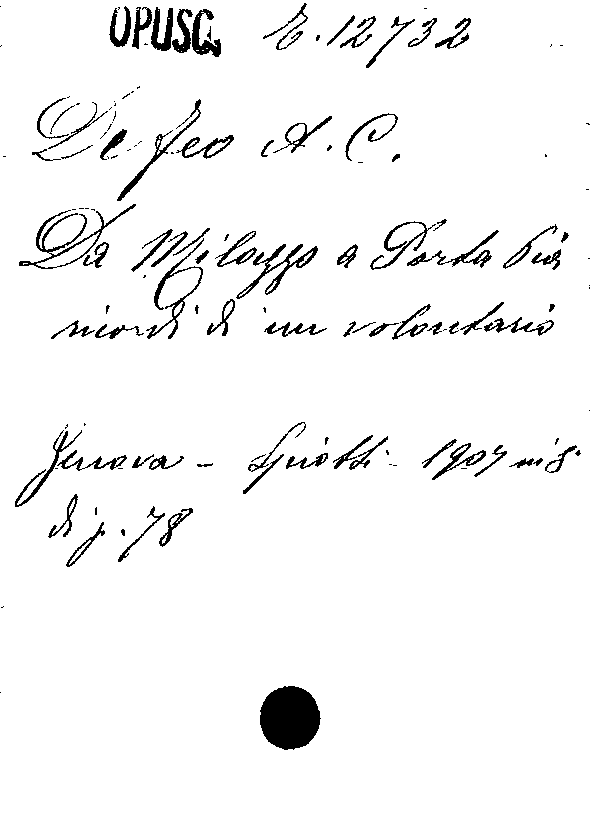 OPUSC. E. 12732
De Feo A. C.
Da Milazzo a Porta Pia
ricordi di un volontario
Genova - 1907 in 8°
di p. 78